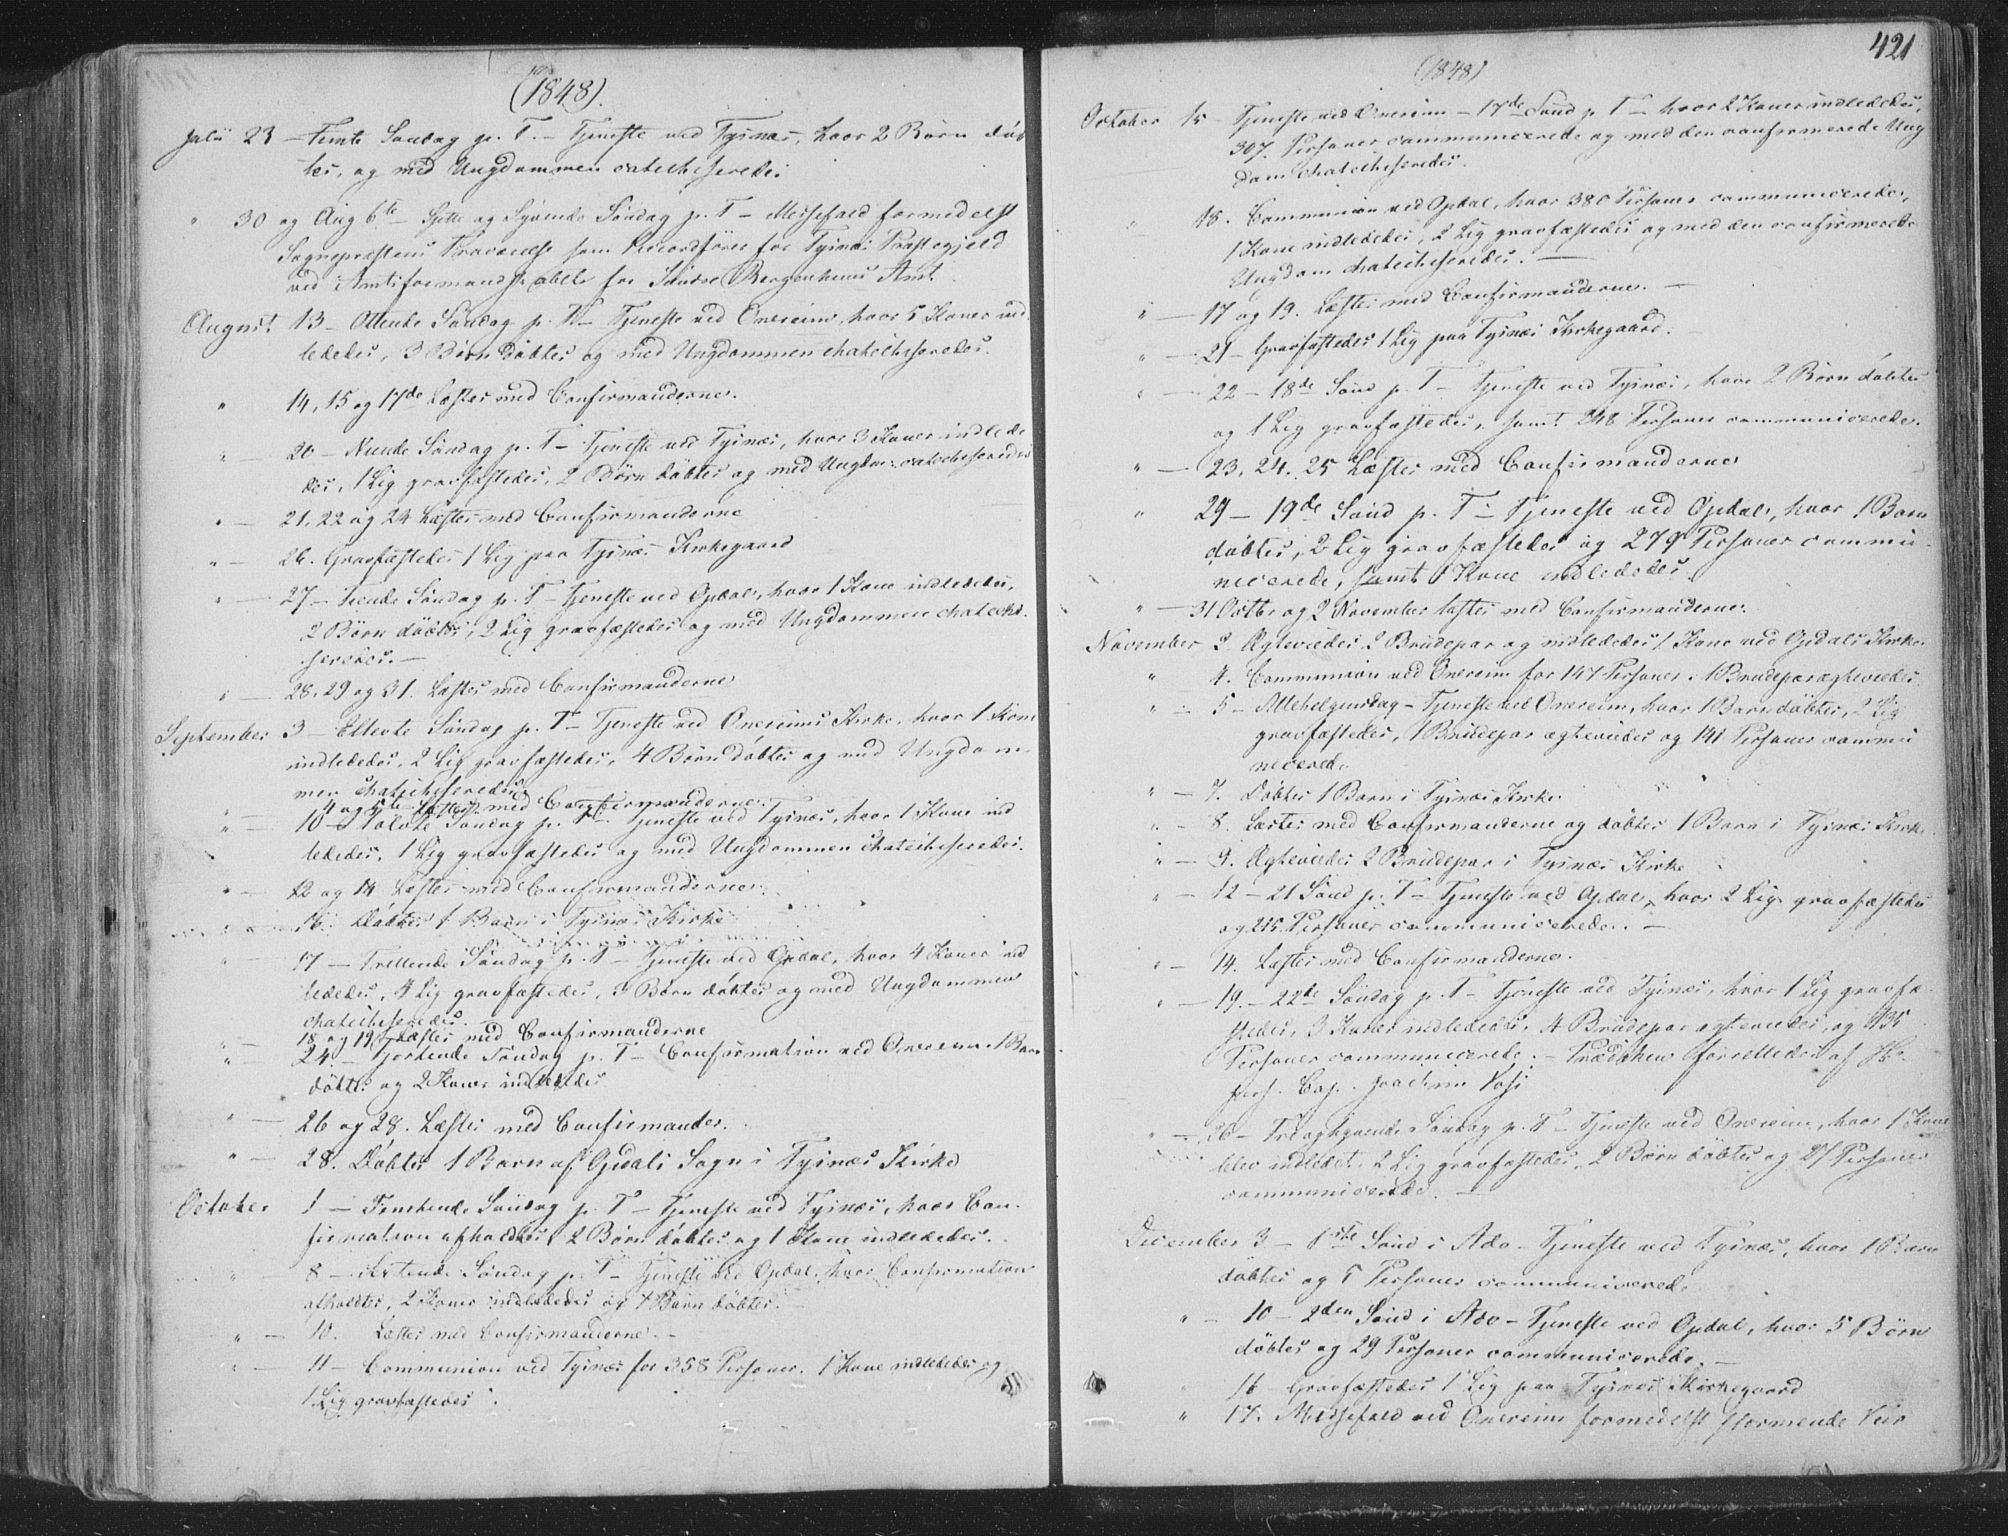 (1848).
Julii 23 – Femte Søndag p. T. – Tjeneste ved Tysnæs, hvor 2 Børn døb
tes, og med Ungdommen catechiseredes.
" 30 og Aug 6te – Sjette og Syvende Søndag p. T – Messefald formedelst
Sognepræstens Fraværelse som Repræsentant for Tysnæs Præstegjeld
ved Amtsformandskabet for Søndre Bergenhuus Amt.
August 13 – Ottende Søndag p. T. – Tjeneste ved Onereim, hvor 5 Koner ind
lededes, 3 Børn døbtes og med Ungdommen chatechiseredes.
" 14, 15 og 17de Læstes med Confirmanderne.
" – 20 – Niende Søndag p. T – Tjeneste ved Tysnæs, hvor 3 Koner indlede
des, 1 Lig gravfæstedes, 2 Børn døbtes og med Ungdom: catechiseredes
" – 21, 22 og 24 Læstes med Confirmanderne
" – 26. Gravfæstedes 1 Lig paa Tysnæs Kirkegaard
" – 27 – Tiende Søndag p. T – Tjeneste ved Opdal, hvor 1 Kone indlededes,
2 Børn døbtes, 2 Lig gravfæstedes og med Ungdommen chatechi
seredes. –
" – 28. 29 og 31. Læstes med Confirmanderne
September 3 – Ellevte Søndag p. T – Tjeneste ved Onereims Kirke, hvor 1 Kone
indlededes, 2 Lig gravfæstedes, 4 Børn døbtes og med Ungdom
men chatechiseredes
" 4 og 5te Læstes med Confirmanderne.
" – 10 – Tolvte Søndag p. T – Tjeneste ved Tysnæs, hvor 1 Kone ind
lededes, 1 Lig gravfæstedes og med Ungdommen chatechiseredes.
" – 12 og 14 Læstes med Confirmanderne.
16. Døbtes 1 Barn i Tysnæs Kirke
" 17 – Trettende Søndag p. T – Tjeneste ved Opdal, hvor 4 Koner ind
lededes, 4 Lig gravfæstedes, 3 Børn døbtes og med Ungdommen
chatechiseredes.
" – 18 og 19. Læstes med Confirmanderne
" 24 – Fjortende Søndag p. T – Confirmation ved Onereim. 1 Barn
døbtes og 2 Koner indlededes
" – 26 og 28. Læstes med Confirmander.
" – 28. Døbtes 1 Barn af Opdals Sogn i Tysnæs Kirke
October 1 – Femtende Søndag p. T – Tjeneste ved Tysnæs, hvor Con
firmation afholdtes, 2 Børn døbtes og 1 Kone indlededes.
" 8 – Sextende Søndag p. T – Tjeneste ved Opdal, hvor Confirmation
afholdtes, 2 Koner indlededes og 4 Børn døbtes.
" – 10. Læstes med Confirmanderne. –
" – 11 – Communion ved Tysnæs for 358 Personer. 1 Kone indlededes og
1 Lig gravfæstedes.
421
(1848)
October 15 – Tjeneste ved Onereim – 17de Sønd p. T – hvor 2 Koner indlededes,
307. Personer communicerede og med den confirmerede Ung
dom chatechiseredes.
" 18. Communion ved Opdal, hvor 380 Personer communicerede,
1 Kone indlededes, 2 Lig gravfæstedes og med den confirmerede
Ungdom chatechiseredes. –
" – 17 og 19. Læstes med Confirmanderne. –
" – 21 – Gravfæstedes 1 Lig paa Tysnæs Kirkegaard.
" – 22 – 18de Sønd p. T – Tjeneste ved Tysnæs, hvor 2 Børn døbtes
og 1 Lig gravfæstedes, samt 248 Personer communicerede.
" – 23. 24. 25 Læstes med Confirmanderne
" 29 – 19de Sønd p. T – Tjeneste ved Opdal, hvor 1 Barn
døbtes, 2 Lig gravfæstedes og 279 Personer commu
nicerede, samt 1 Kone indlededes.
" – 31 Octbr og 2 November læstes med Confirmanderne.
November 2 Ægteviedes 2 Brudepar og indlededes 1 Kone ved Opdals Kirke.
" 4. Communion ved Onereim for 147 Personer. 1 Brudepar ægteviedes
" – 5 – Allehelgensdag – Tjeneste ved Onereim, hvor 1 Barn døbtes, 2 Lig
gravfæstedes, 1 Brudepar ægteviedes og 141 Personer commu
nicerede.
" – 7. Døbtes 1 Barn i Tysnæs Kirke.
" – 8. Læstes med Confirmanderne og døbtes 1 Barn i Tysnæs Kirke.
" – 9. Ægteviedes 2 Brudepar i Tysnæs Kirke
" – 12 – 21 Sønd p. T – Tjeneste ved Opdal, hvor 2 Lig gravfæstedes
og 215 Personer communicerede. –
" – 14. Læstes med Confirmanderne.
" – 19. – 22de Søndag p. T – Tjeneste ved Tysnæs, hvor 1 Lig gravfæ
stedes, 3 Koner indlededes, 4 Brudepar ægteviedes, og 135
Personer communicerede. – Prædiken forrettedes af Hr.
pers. Cap. Joachim Vosz
" – 26 – Tre og tyvende Søndag p. T – Tjeneste ved Onereim, hvor 1 Kone
blev indledet, 2 Lig gravfæstedes, 2 Børn døbtes og 27 Personer
communicerede. –
December 3 – 1ste Sønd i Adv – Tjeneste ved Tysnæs, hvor 1 Barn
døbtes og 5 Personer communicerede.
" 10 – 2den Sønd i Adv – Tjeneste ved Opdal, hvor 5 Børn
døbtes og 29 Personer communicerede. –
" 16 – Gravfæstedes 1 Lig paa Tysnæs Kirkegaard
" 17. Messefald ved Onereim formedelst stormende Veir